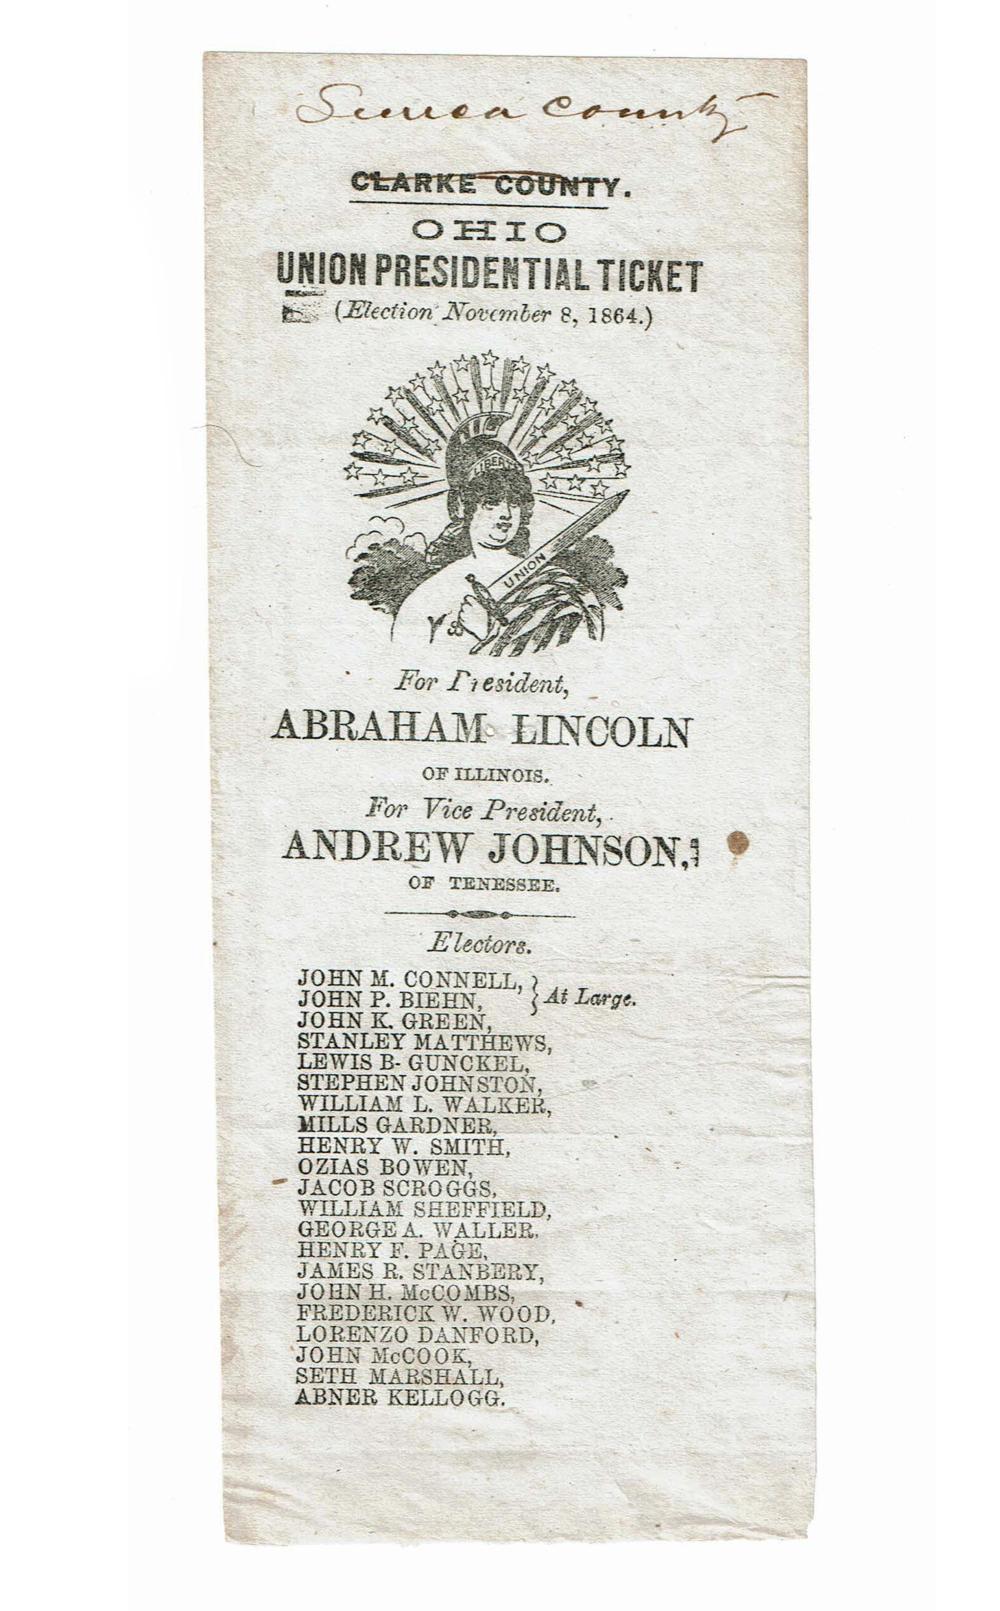 Seneca County
CLARKE COUNTY.
OHIO
UNION PRESIDENTIAL TICKET
(Election November 8, 1864.)
LIBERTY
UNION
For President,
ABRAHAM LINCOLN
OF ILLINOIS.
For Vice President,
ANDREW JOHNSON,
OF TENESSEE.
Electors.
JOHN M. CONNELL,
JOHN P. BIEHN,
At Large.
JOHN K. GREEN,
STANLEY MATTHEWS,
LEWIS B- GUNCKEL,
STEPHEN JOHNSTON,
WILLIAM L. WALKER,
MILLS GARDNER,
HENRY W. SMITH,
OZIAS BOWEN,
JACOB SCROGGS,
WILLIAM SHEFFIELD,
GEORGE A. WALLER,
HENRY F. PAGE,
JAMES R. STANBERY,
JOHN H. McCOMBS,
FREDERICK W. WOOD,
LORENZO DANFORD,
JOHN McCOOK,
SETH MARSHALL,
ABNER KELLOGG.